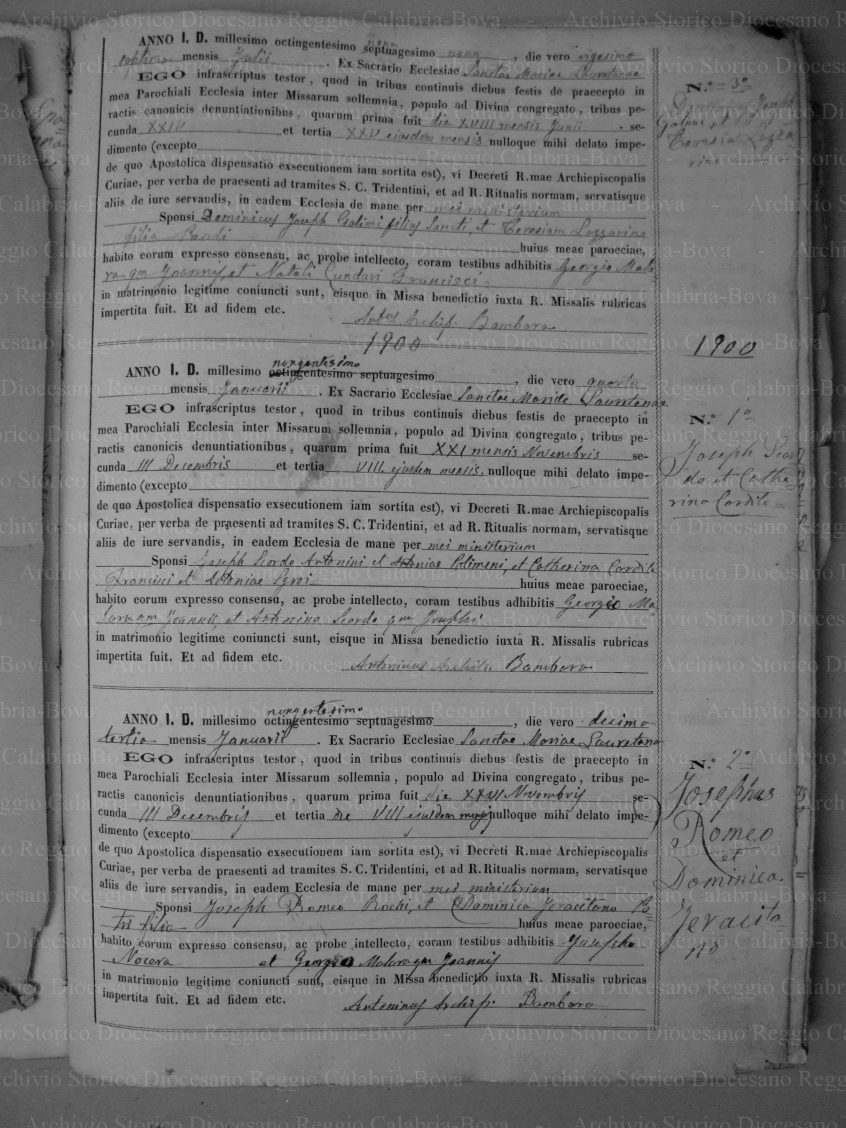 ANNO I. D. millesimo octingentesimo septuagesimo nono, die vero vigesimo
mensis Julii. Ex Sacrario Ecclesiae Sanctae Mariae Lauretanae
EGO infrascriptus testor, quod in tribus continuis diebus festis de praecepto in
mea Parochiali Ecclesia inter Missarum sollemnia, populo ad Divina congregato, tribus pe-
ractis canonicis denuntiationibus, quarum prima fuit die XVIII mensis Junii se-
cunda XXIV et tertia XXV ejusdem mensis nulloque mihi delato impe-
dimento (excepto
de quo Apostolica dispensatio exsecutionem iam sortita est), vi Decreti R.mae Archiepiscopalis
Curiae, per verba de praesenti ad tramites S. C. Tridentini, et ad R. Ritualis normam, servatisque
aliis de iure servandis, in eadem Ecclesia de mane per mei ministerium
Sponsi Dominicus Joseph filius Sancti, et Teresiam Lazzarino
filia Pauli huius meae paroeciae,
habito eorum expresso consensu, ac probe intellecto, coram testibus adhibitis Georgio Mala-
ra qm Joannis, et Natali Cundari Francisci
in matrimonio legitime coniuncti sunt, eisque in Missa benedictio iuxta R. Missalis rubricas
impertita fuit. Et ad fidem etc.
Bambara
N.º 3º
Joseph
1900
1900
nongentesimo
ANNO I. D. millesimo octingentesimo septuagesimo, die vero quarto
mensis Januarii. Ex Sacrario Ecclesiae Sanctae Mariae Lauretanae
EGO infrascriptus testor, quod in tribus continuis diebus festis de praecepto in
mea Parochiali Ecclesia inter Missarum sollemnia, populo ad Divina congregato, tribus pe-
ractis canonicis denuntiationibus, quarum prima fuit XXI mensis Novembris se-
cunda III Decembris et tertia VIII ejusdem mensis nulloque mihi delato impe-
dimento (excepto
de quo Apostolica dispensatio exsecutionem iam sortita est), vi Decreti R.mae Archiepiscopalis
Curiae, per verba de praesenti ad tramites S. C. Tridentini, et ad R. Ritualis normam, servatisque
aliis de iure servandis, in eadem Ecclesia de mane per mei ministerium
Sponsi Joseph Scordo Antonini et Antoniae Polimeni, et Catherina Cardile
Francisci et Antoniae huius meae paroeciae,
habito eorum expresso consensu, ac probe intellecto, coram testibus adhibitis Georgio Ma-
lara qm Joannis, et Antonino Scordo qm Josephi
in matrimonio legitime coniuncti sunt, eisque in Missa benedictio iuxta R. Missalis rubricas
impertita fuit. Et ad fidem etc.
Antoninus Bambara
N.º 1º
Joseph Scor-
do et Cathe-
rina Cardile
nongentesimo
ANNO I. D. millesimo octingentesimo septuagesimo, die vero decimo
tertio mensis Januarii. Ex Sacrario Ecclesiae Sanctae Mariae Lauretanae
EGO infrascriptus testor, quod in tribus continuis diebus festis de praecepto in
mea Parochiali Ecclesia inter Missarum sollemnia, populo ad Divina congregato, tribus pe-
ractis canonicis denuntiationibus, quarum prima fuit die XXVI Novembris se-
cunda III Decembris et tertia die VIII ejusdem mensis nulloque mihi delato impe-
dimento (excepto
de quo Apostolica dispensatio exsecutionem iam sortita est), vi Decreti R.mae Archiepiscopalis
Curiae, per verba de praesenti ad tramites S. C. Tridentini, et ad R. Ritualis normam, servatisque
aliis de iure servandis, in eadem Ecclesia de mane per mei ministerium
Sponsi Joseph Romeo Rochi, et Dominica Jeracitano Pe-
tri filia huius meae paroeciae,
habito eorum expresso consensu, ac probe intellecto, coram testibus adhibitis Josepho
Nocera et Georgio Malara qm Joannis
in matrimonio legitime coniuncti sunt, eisque in Missa benedictio iuxta R. Missalis rubricas
impertita fuit. Et ad fidem etc.
Antoninus Archip. Bambara
N.º 2º
Josephus
Romeo
et
Dominica
Jeracita-
no
Archivio Storico Diocesano Reggio Calabria-Bova